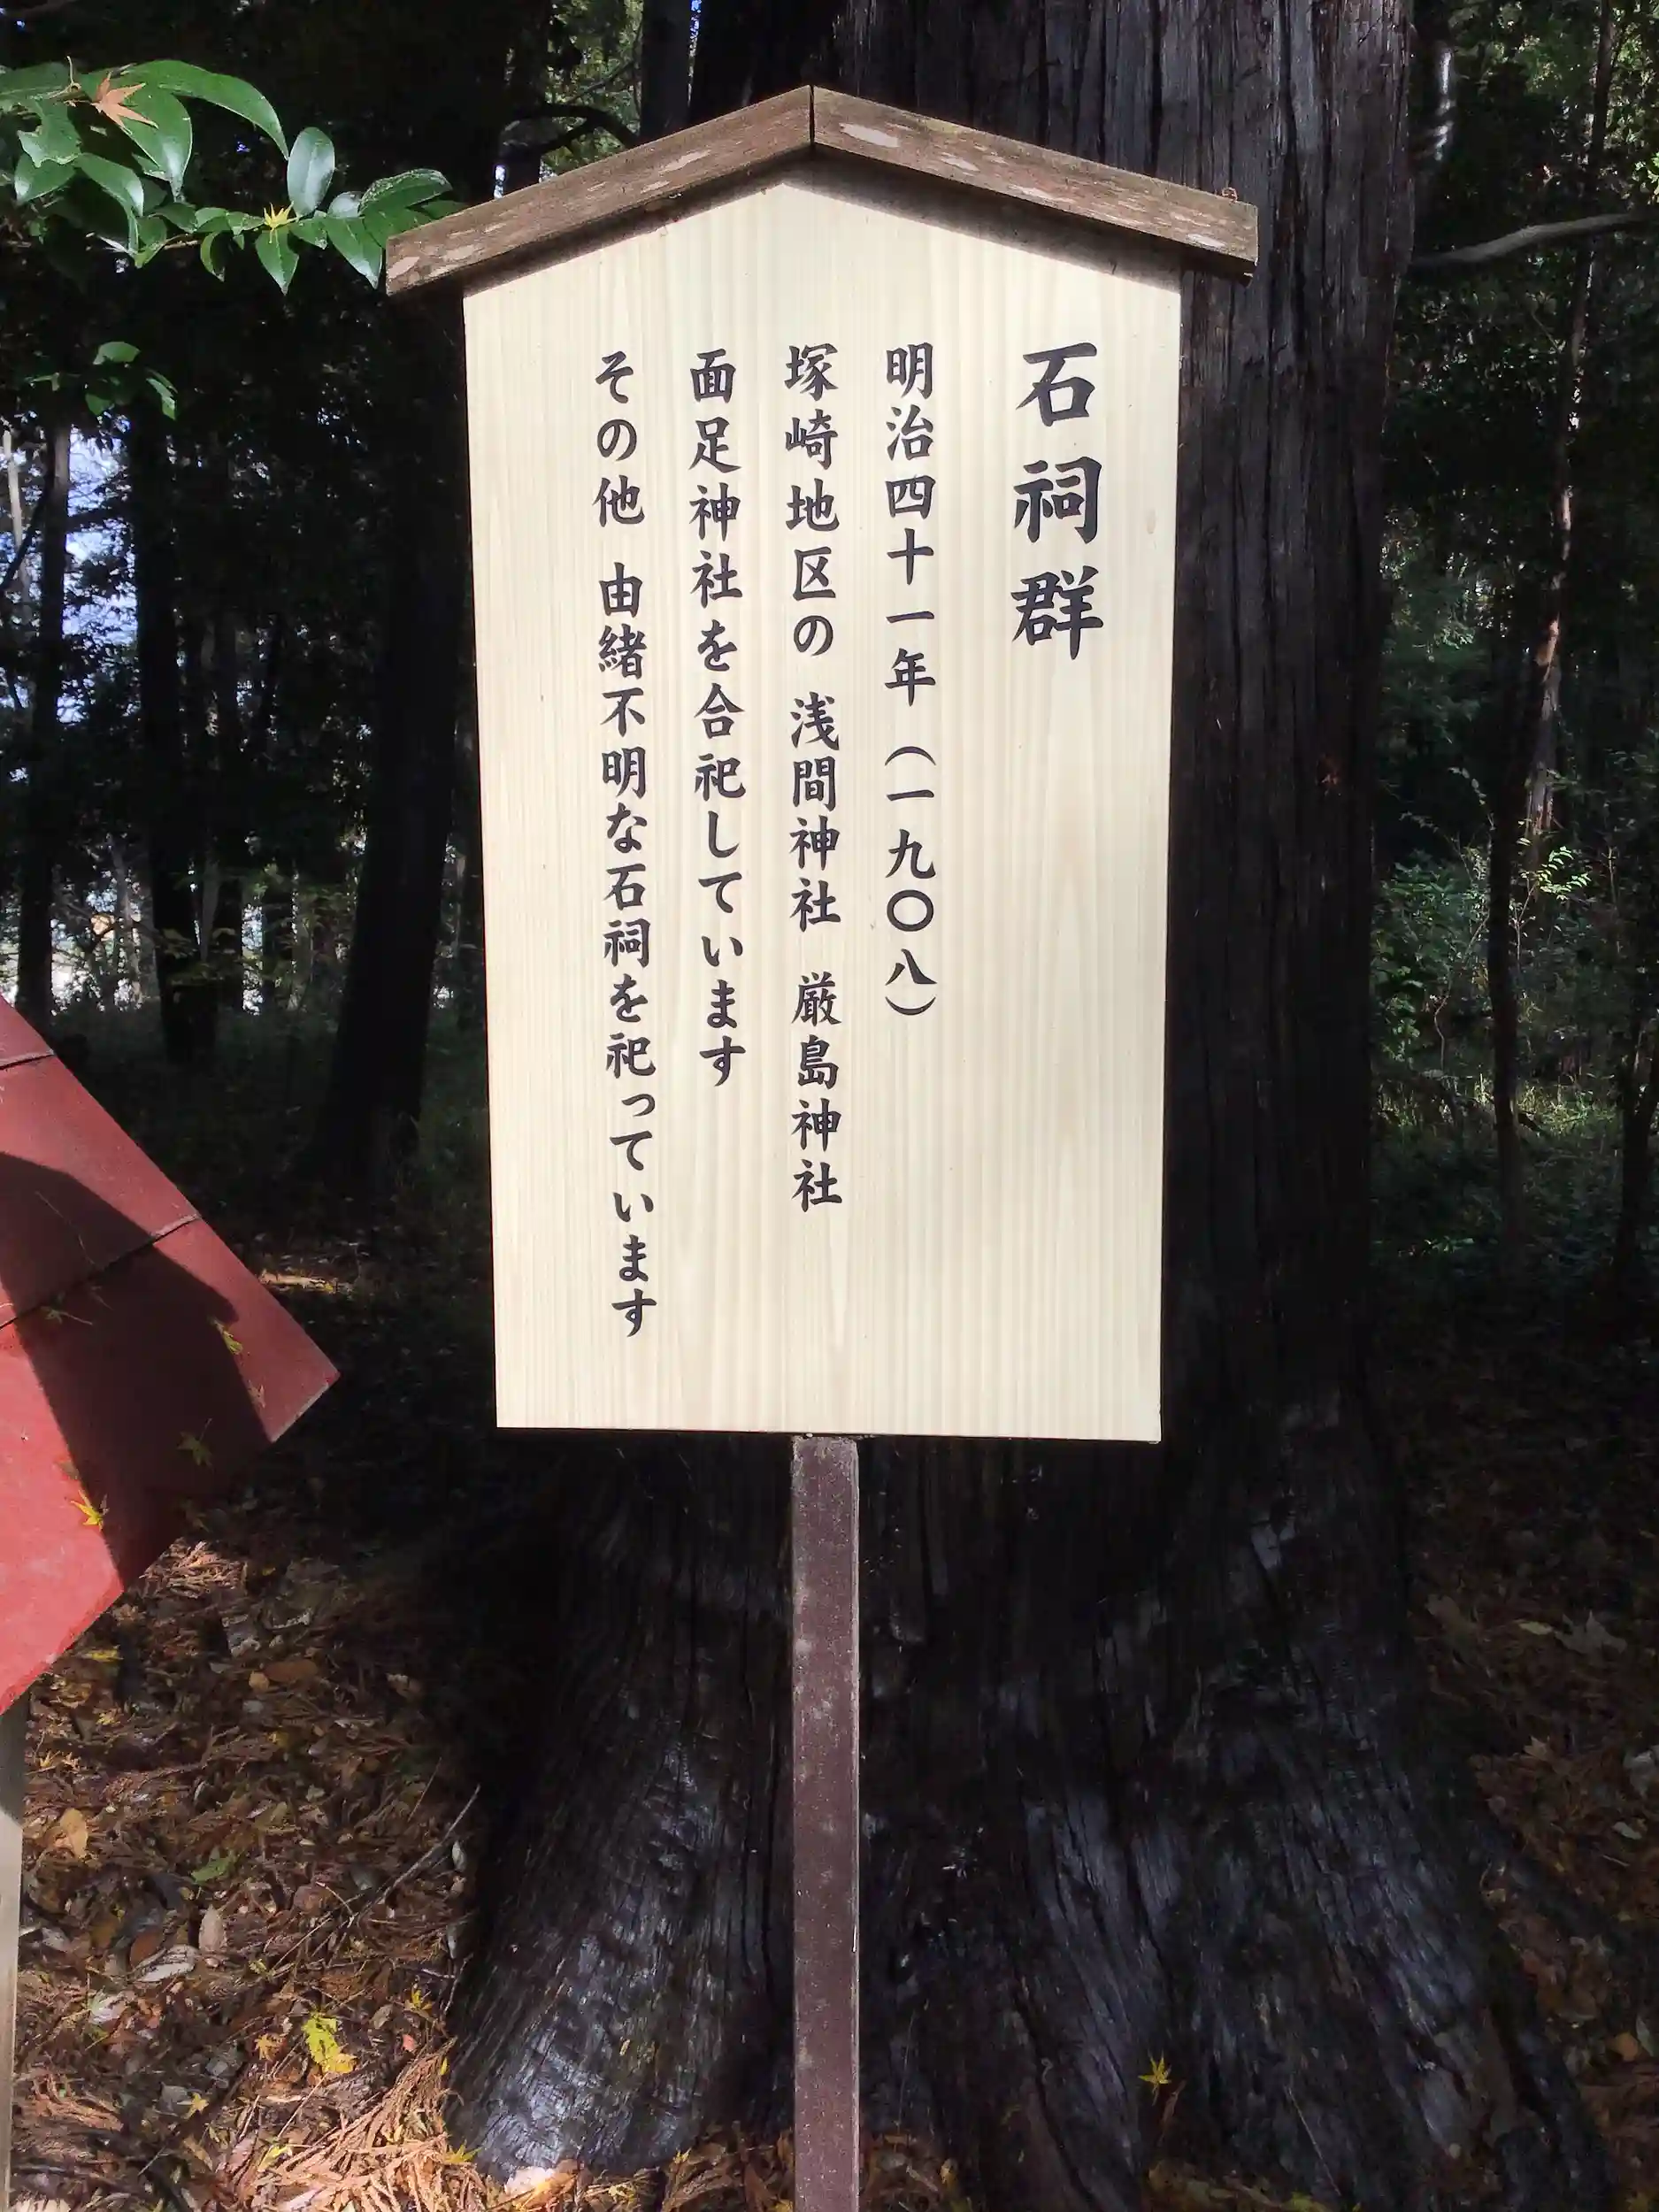 石祠群
明治四十一年(一九〇八)
塚崎地区の 浅間神社 厳島神社
面足神社を合祀しています
その他 由緒不明な石祠を祀っています